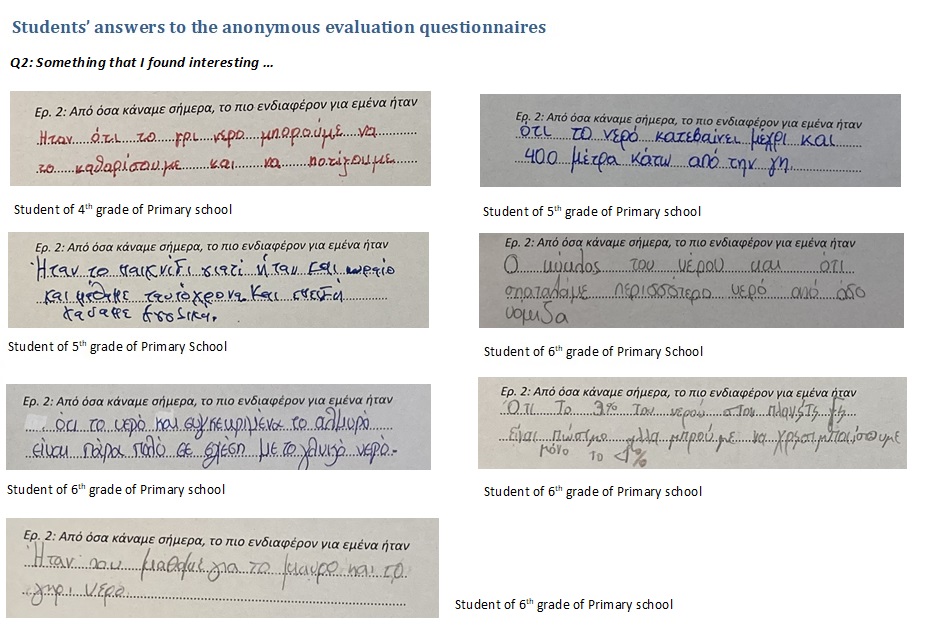 Students' answers to the anonymous evaluation questionnaires
Q2: Something that I found interesting ...
Ερ. 2: Από όσα κάναμε σήμερα, το πιο ενδιαφέρον για εμένα ήταν
Ήταν ότι το γκρι νερο μπορούμε να
το καθαρίσουμε και να ποτίζουμε
Student of 4th grade of Primary school
Ερ. 2: Από όσα κάναμε σήμερα, το πιο ενδιαφέρον για εμένα ήταν
ότι το νερό κατεβαίνει μέχρι και
400 μέτρα κάτω από την γη.
Student of 5th grade of Primary school
Ερ. 2: Από όσα κάναμε σήμερα, το πιο ενδιαφέρον για εμένα ήταν
Ήταν το παιχνίδι γιατί ήταν και ωραίο
και ταυτόχρονα και επειδή
Student of 5th grade of Primary School
Ερ. 2: Από όσα κάναμε σήμερα, το πιο ενδιαφέρον για εμένα ήταν
Ο κύκλος του νέρου και ότι
σπαταλάμε περισσότερο νερό από όσο
νόμιζα
Student of 6th grade of Primary School
Ερ. 2: Από όσα κάναμε σήμερα, το πιο ενδιαφέρον για εμένα ήταν
ότι το νερό και συγκεκριμένα το αλμυρό
είναι πάρα πολύ σε σχέση με το γλυκό νερό.
Student of 6th grade of Primary school
Ερ. 2: Από όσα κάναμε σήμερα, το πιο ενδιαφέρον για εμένα ήταν
Ότι Το 3% Του νερού στον πλανήτη
είναι πώσιμο αλλα μπρούμε να
μόνο το 1%
Student of 6th grade of Primary school
Ερ. 2: Από όσα κάναμε σήμερα, το πιο ενδιαφέρον για εμένα ήταν
Ήταν που μαθαμε για το μαυρο και το
γκρι νερο
Student of 6th grade of Primary school